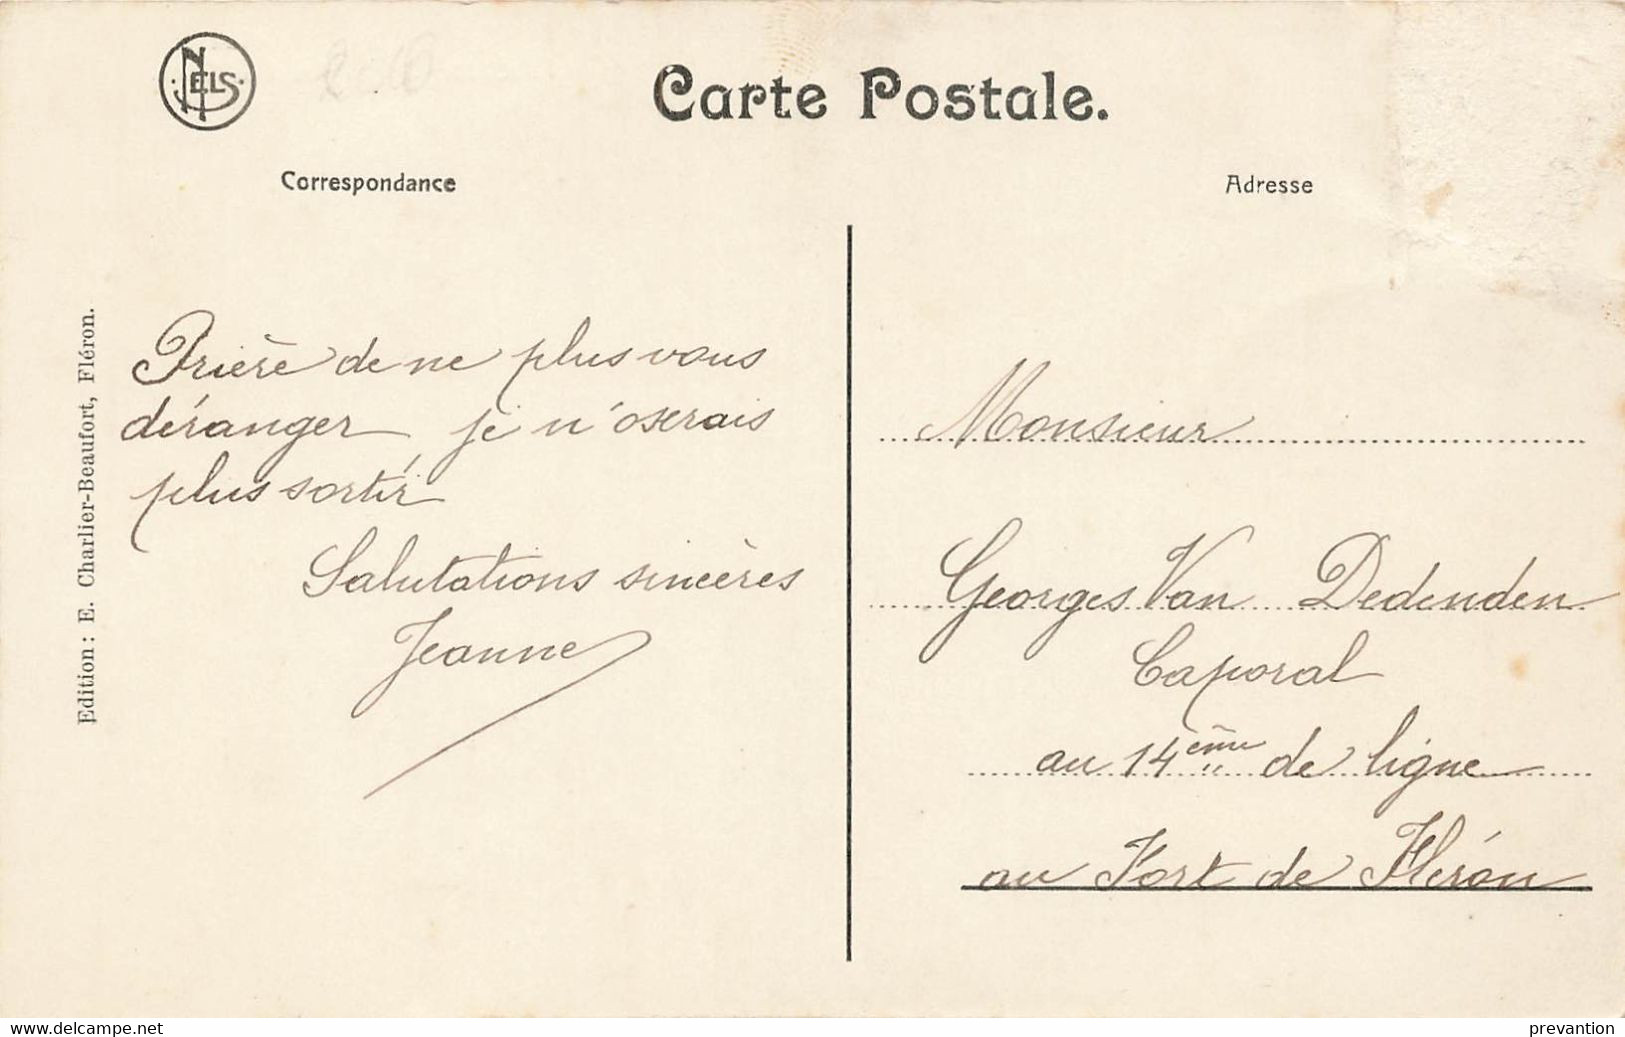 NELS
Carte Postale.
Correspondance
Adresse
Edition : E. Charlier-Beaufort, Fléron.
Prière de ne plus vous
déranger je n'oserais
plus sortir
Salutations sincères
Jeanne
Monsieur
Georges Van Dedenden
Caporal
au 14ème de ligne
au Fort de Fléron
delcampe.net
prevantion